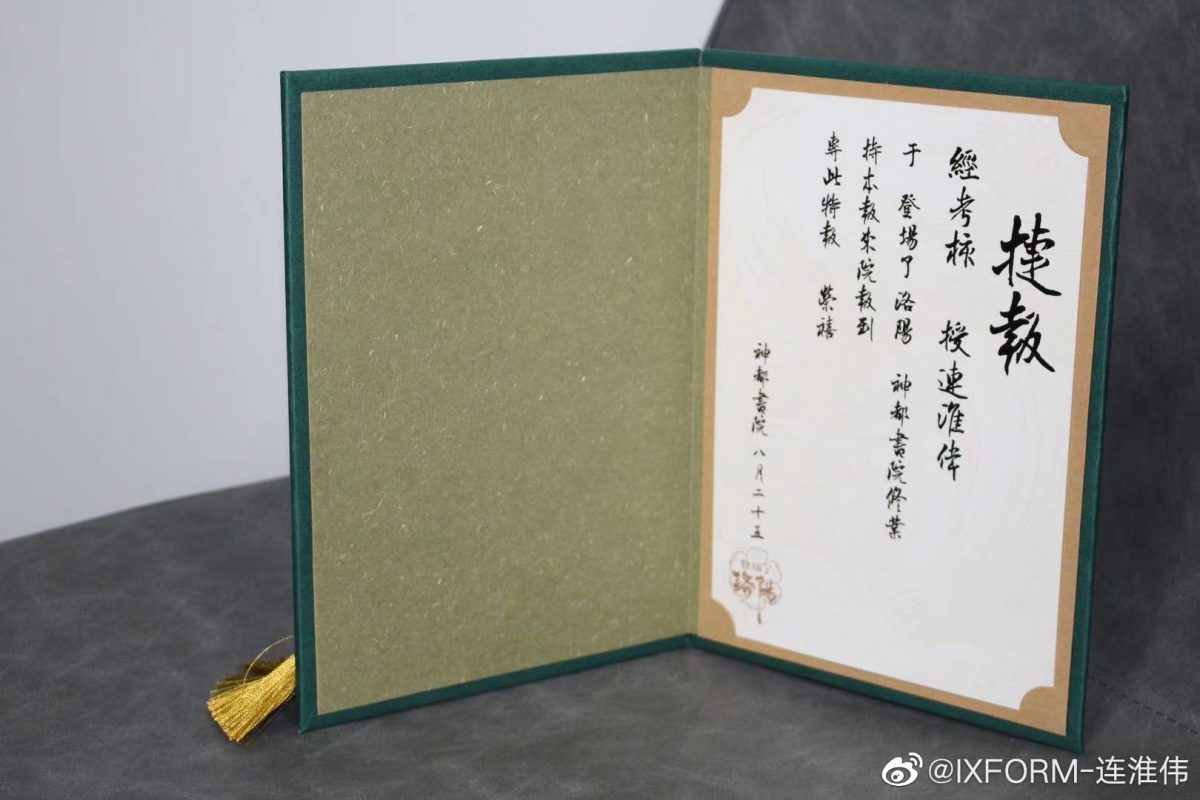 捷報
經考核 授連淮伟
于 登場了洛陽 神都書院修業
持本報來院報到
專此特報 榮禧
神都書院 八月二十五
登場了
洛陽
@IXFORM-连淮伟